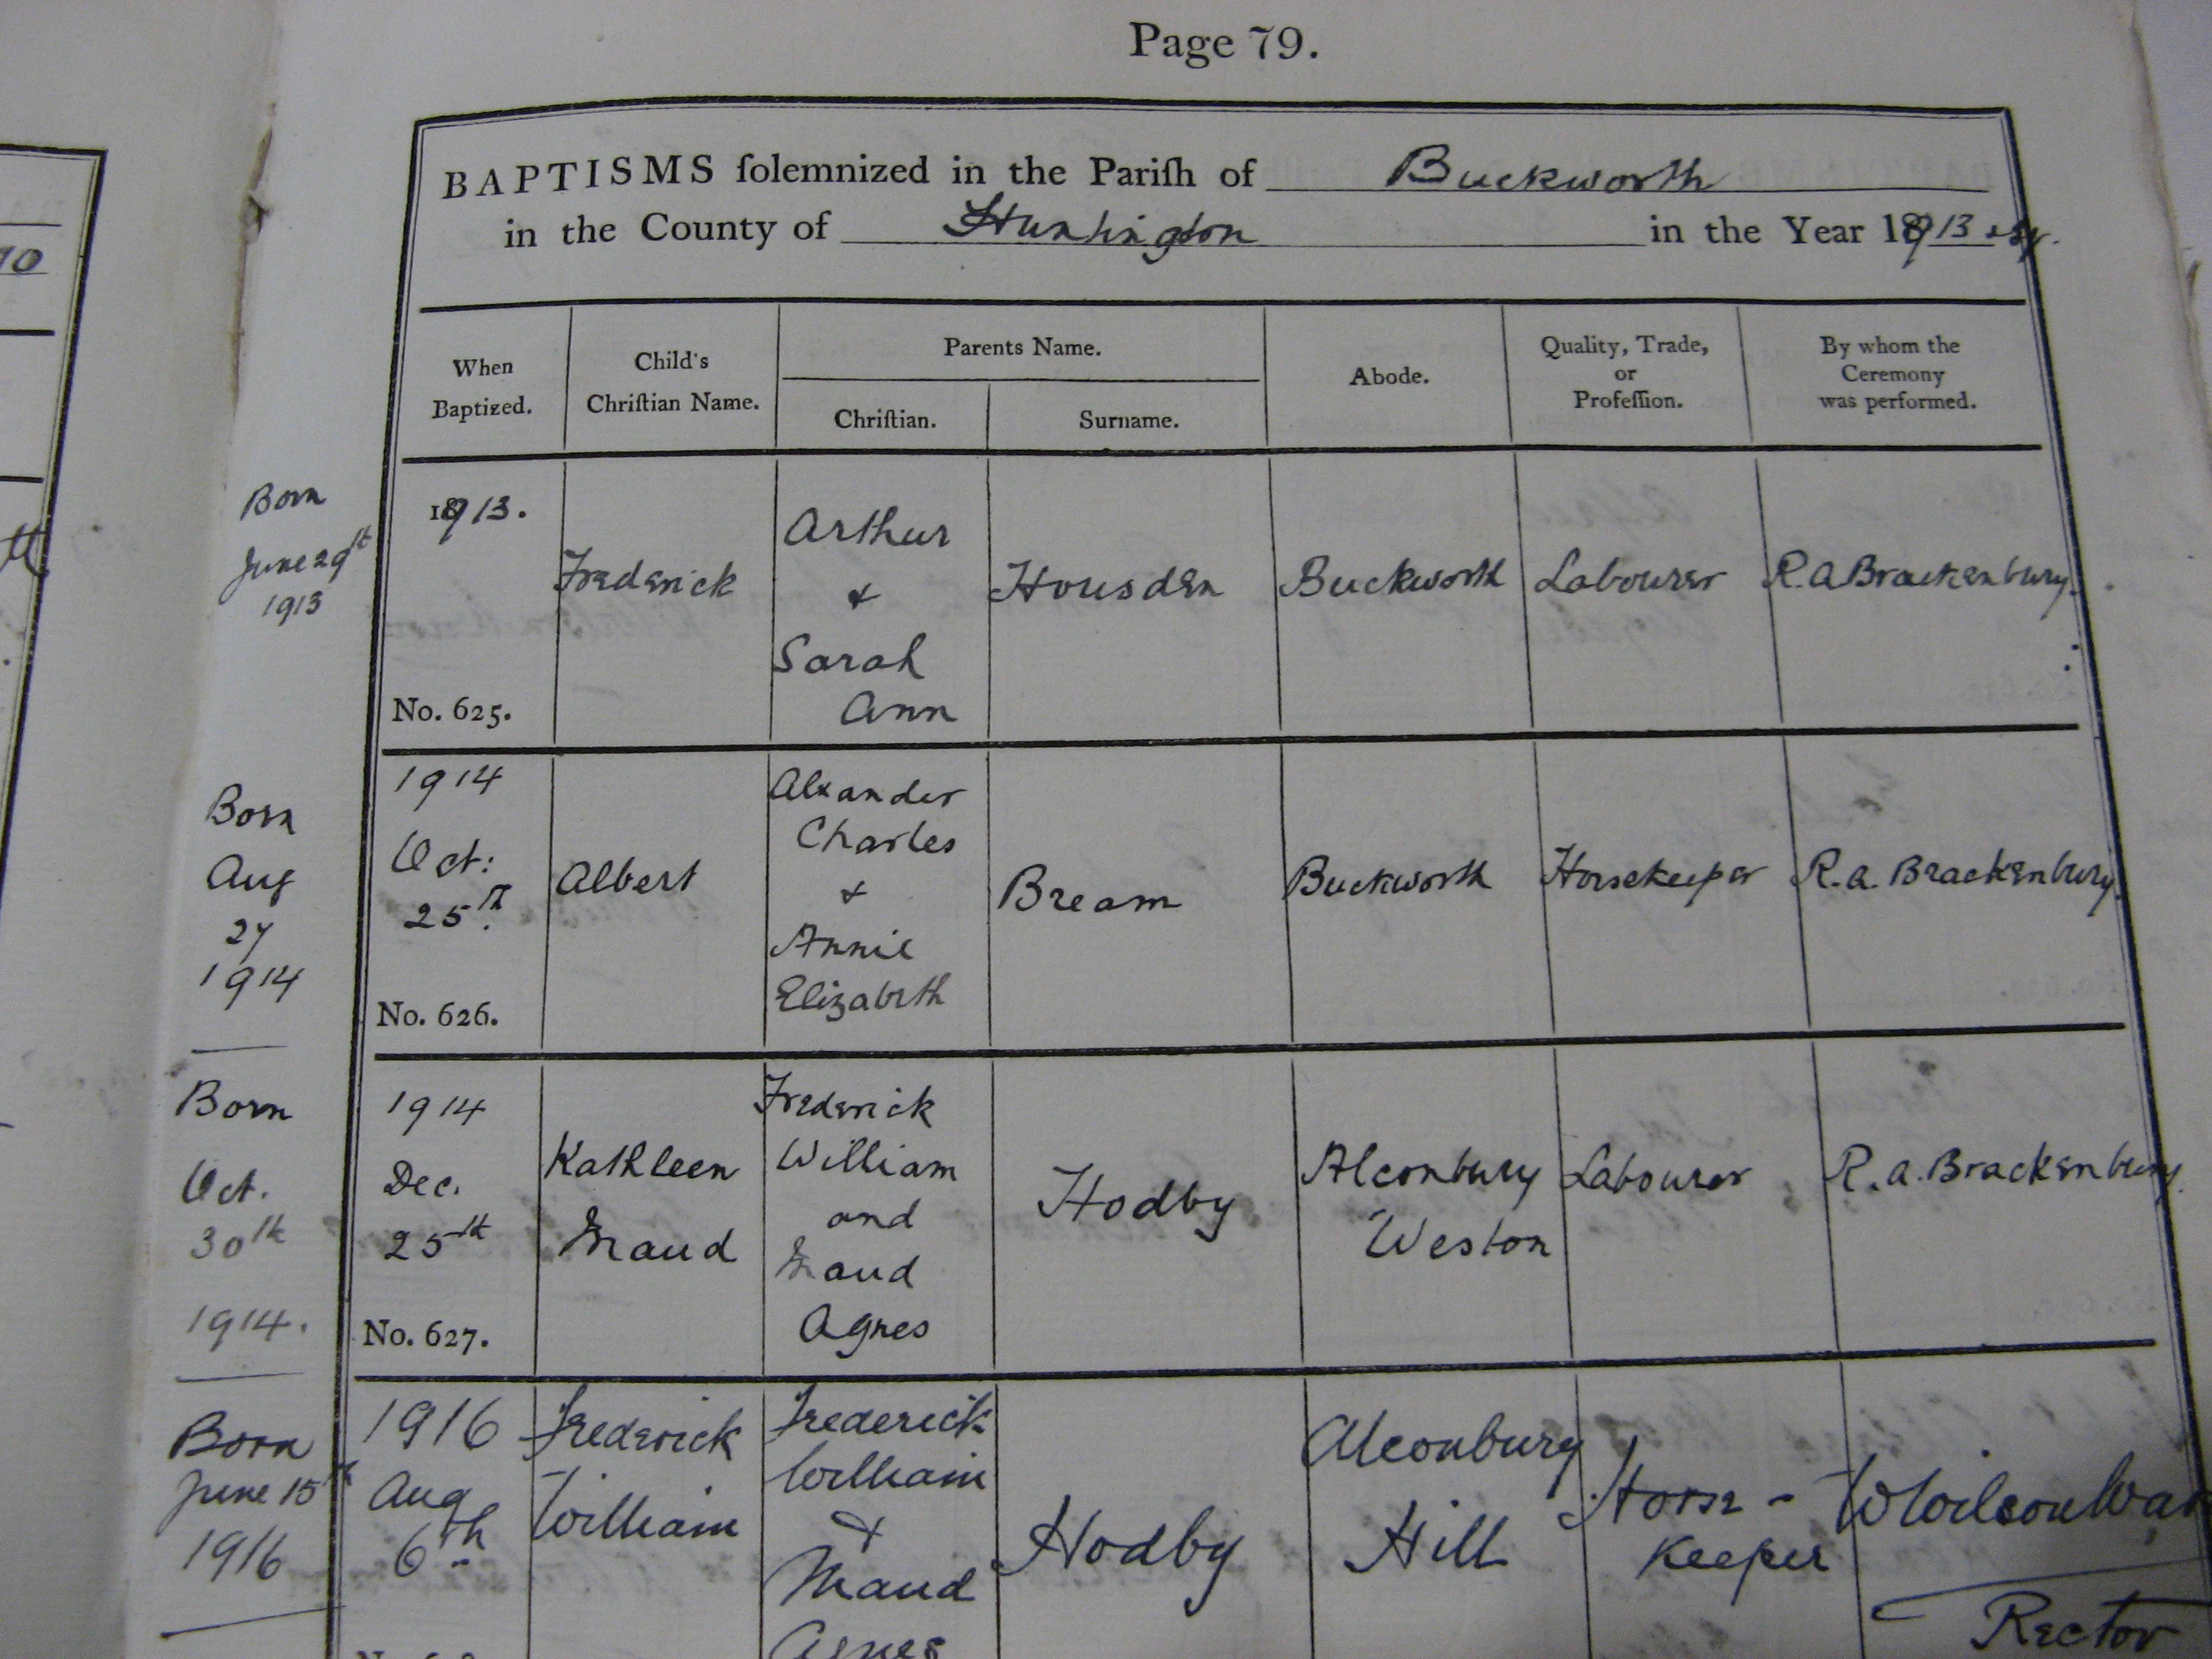 Page 79.
BAPTISMS ſolemnized in the Pariſh of Buckworth
in the County of Huntingdon in the Year 1913
When
Baptized.
Child's
Chriſtian Name.
Parents Name.
Chriſtian.
Surname.
Abode.
Quality, Trade,
or
Profeſſion.
By whom the
Ceremony
was performed.
Born
June 29th
1913
1913.
No. 625.
Frederick
Arthur
&
Sarah
Ann
Housden
Buckworth
Labourer
R. A Brackenbury.
Born
Aug
27
1914
1914
Oct:
25th.
No. 626.
Albert
Alxander
Charles
&
Annie
Elizabeth
Bream
Buckworth
Horsekeeper
R. A. Brackenbury.
Born
Oct.
30th
1914.
1914
Dec.
25th
No. 627.
Kathleen
Maud
Frederick
William
and
Maud
Agnes
Hodby
Alconbury
Weston
Labourer
R. A. Brackenbury.
Born
June 15th
1916
1916
Aug
6th
Frederick
William
Frederick
William
&
Maud
Agnes
Hodby
Alconbury
Hill
Horse-
Keeper
Rector
70